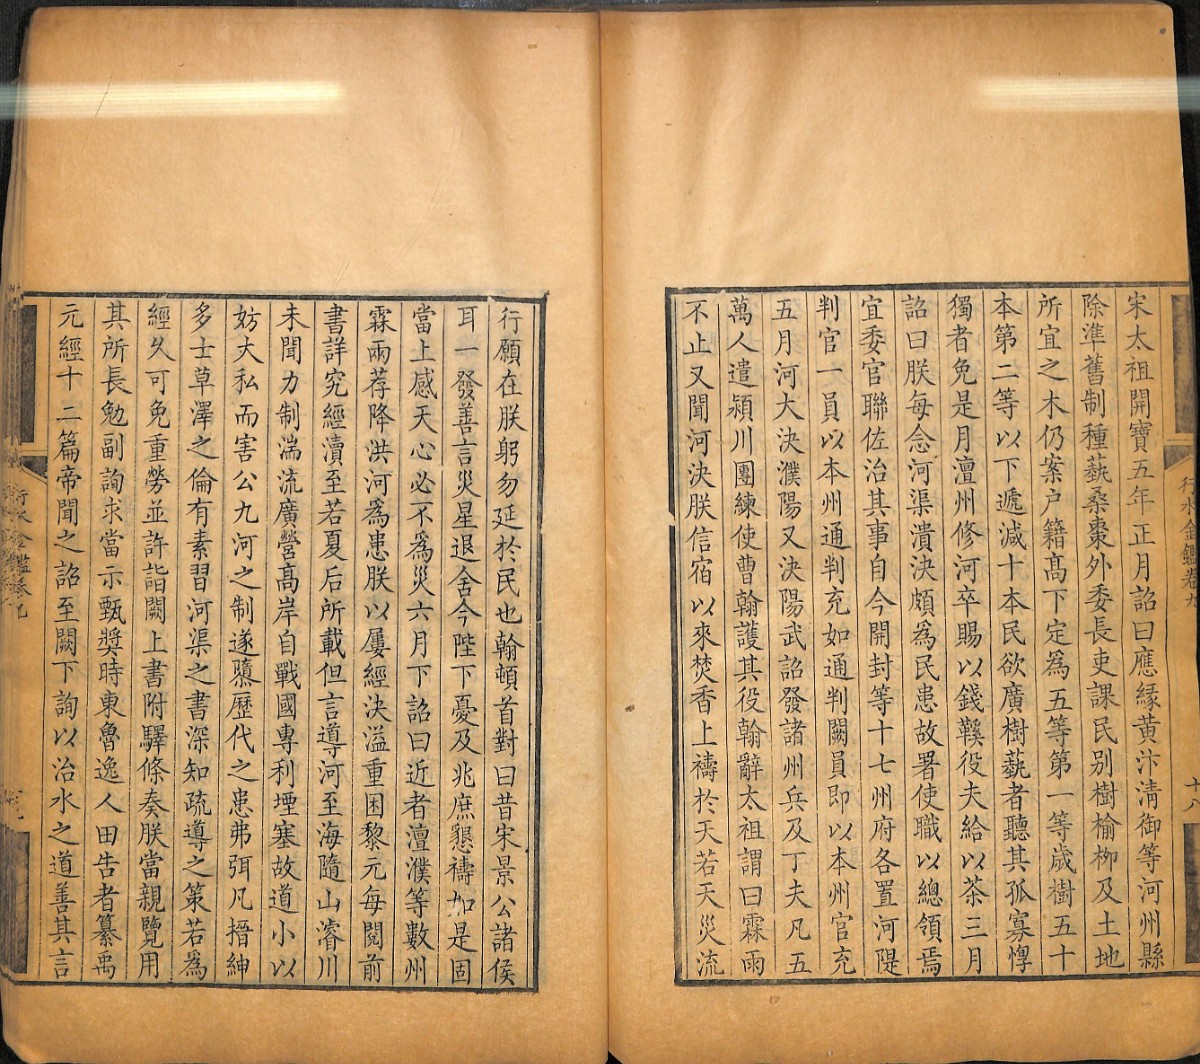 宋太祖開寶五年正月詔曰應緣黃汴淸御等河州縣
除準舊制種蓺桑棗外委長吏課民別樹榆栁及土地
所宜之木仍案户籍髙下定爲五等第一等歲樹五十
本第二等以下遞減十本民欲廣樹蓺者聽其孤寡惸
獨者免是月澶州修河卒賜以錢鞵役夫給以茶三月
詔曰朕每念河渠潰決頗爲民患故署使職以總領焉
宜委官聯佐治其事自今開封等十七州府各置河隄
判官一員以本州通判充如通判闕員即以本州官充
五月河大決濮陽又決陽武詔發諸州兵及丁夫凡五
萬人遣潁川團練使曹翰護其役翰辭太祖謂曰霖雨
不止又聞河決朕信宿以來焚香上禱於天若天災流
行水金鑑卷九
十八
行願在朕躬勿延於民也翰頓首對曰昔宋景公諸侯
耳一發善言災星退舍今陛下憂及兆庶懇禱如是固
當上感天心必不爲災六月下詔曰近者澶濮等數州
霖雨荐降洪河爲患朕以屢經決溢重困黎元每閱前
書詳究經瀆至若夏后所載但言導河至海隨山濬川
未聞力制湍流廣營髙岸自戰國專利堙塞故道小以
妨大私而害公九河之制遂隳歷代之患弗弭凡搢紳
多士草澤之倫有素習河渠之書深知疏導之策若爲
經久可免重勞並許詣闕上書附驛條奏朕當親覽用
其所長勉副詢求當示甄奬時東魯逸人田告者纂禹
元經十二篇帝聞之詔至闕下詢以治水之道善其言